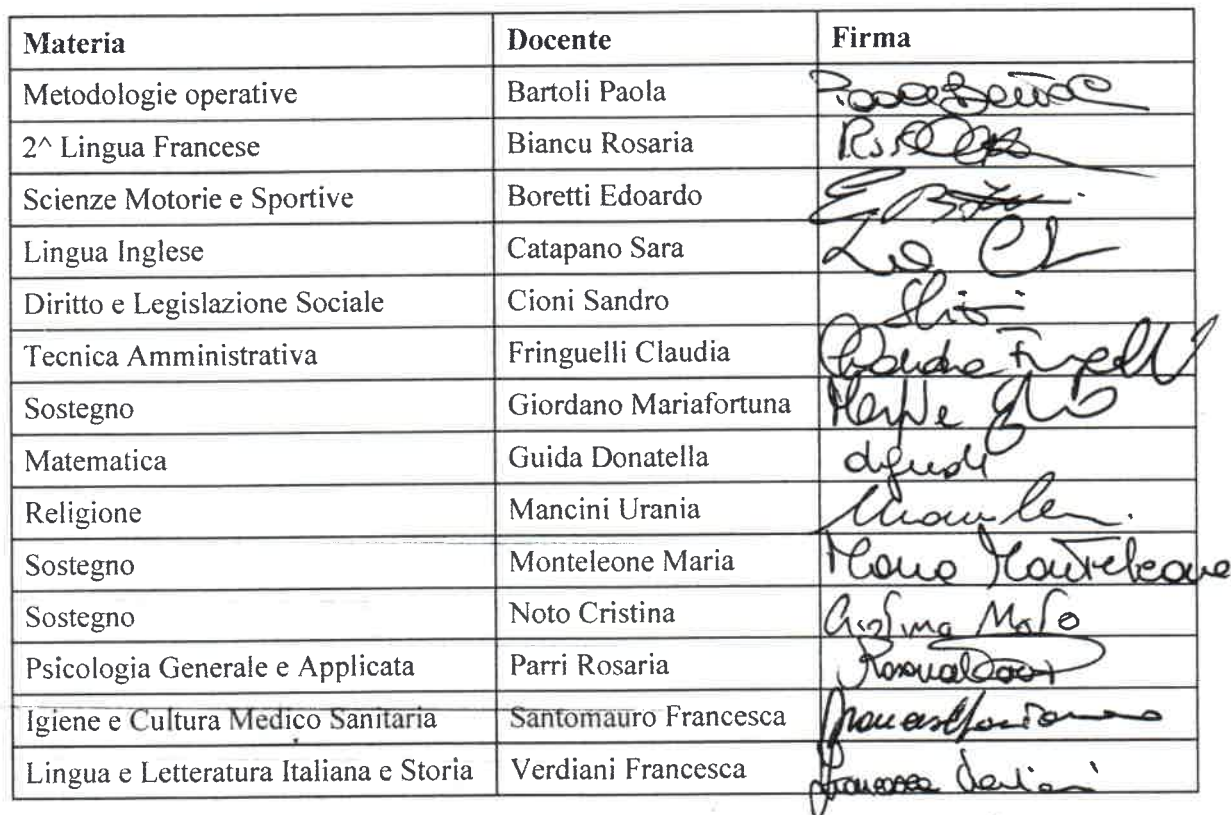 Materia Docente Firma
Metodologie operative Bartoli Paola
2^ Lingua Francese Biancu Rosaria
Scienze Motorie e Sportive Boretti Edoardo
Lingua Inglese Catapano Sara
Diritto e Legislazione Sociale Cioni Sandro
Tecnica Amministrativa Fringuelli Claudia
Sostegno Giordano Mariafortuna
Matematica Guida Donatella
Religione Mancini Urania
Sostegno Monteleone Maria Maria Monteleone
Sostegno Noto Cristina Cristina Noto
Psicologia Generale e Applicata Parri Rosaria
Igiene e Cultura Medico Sanitaria Santomauro Francesca
Lingua e Letteratura Italiana e Storia Verdiani Francesca Francesca Verdiani